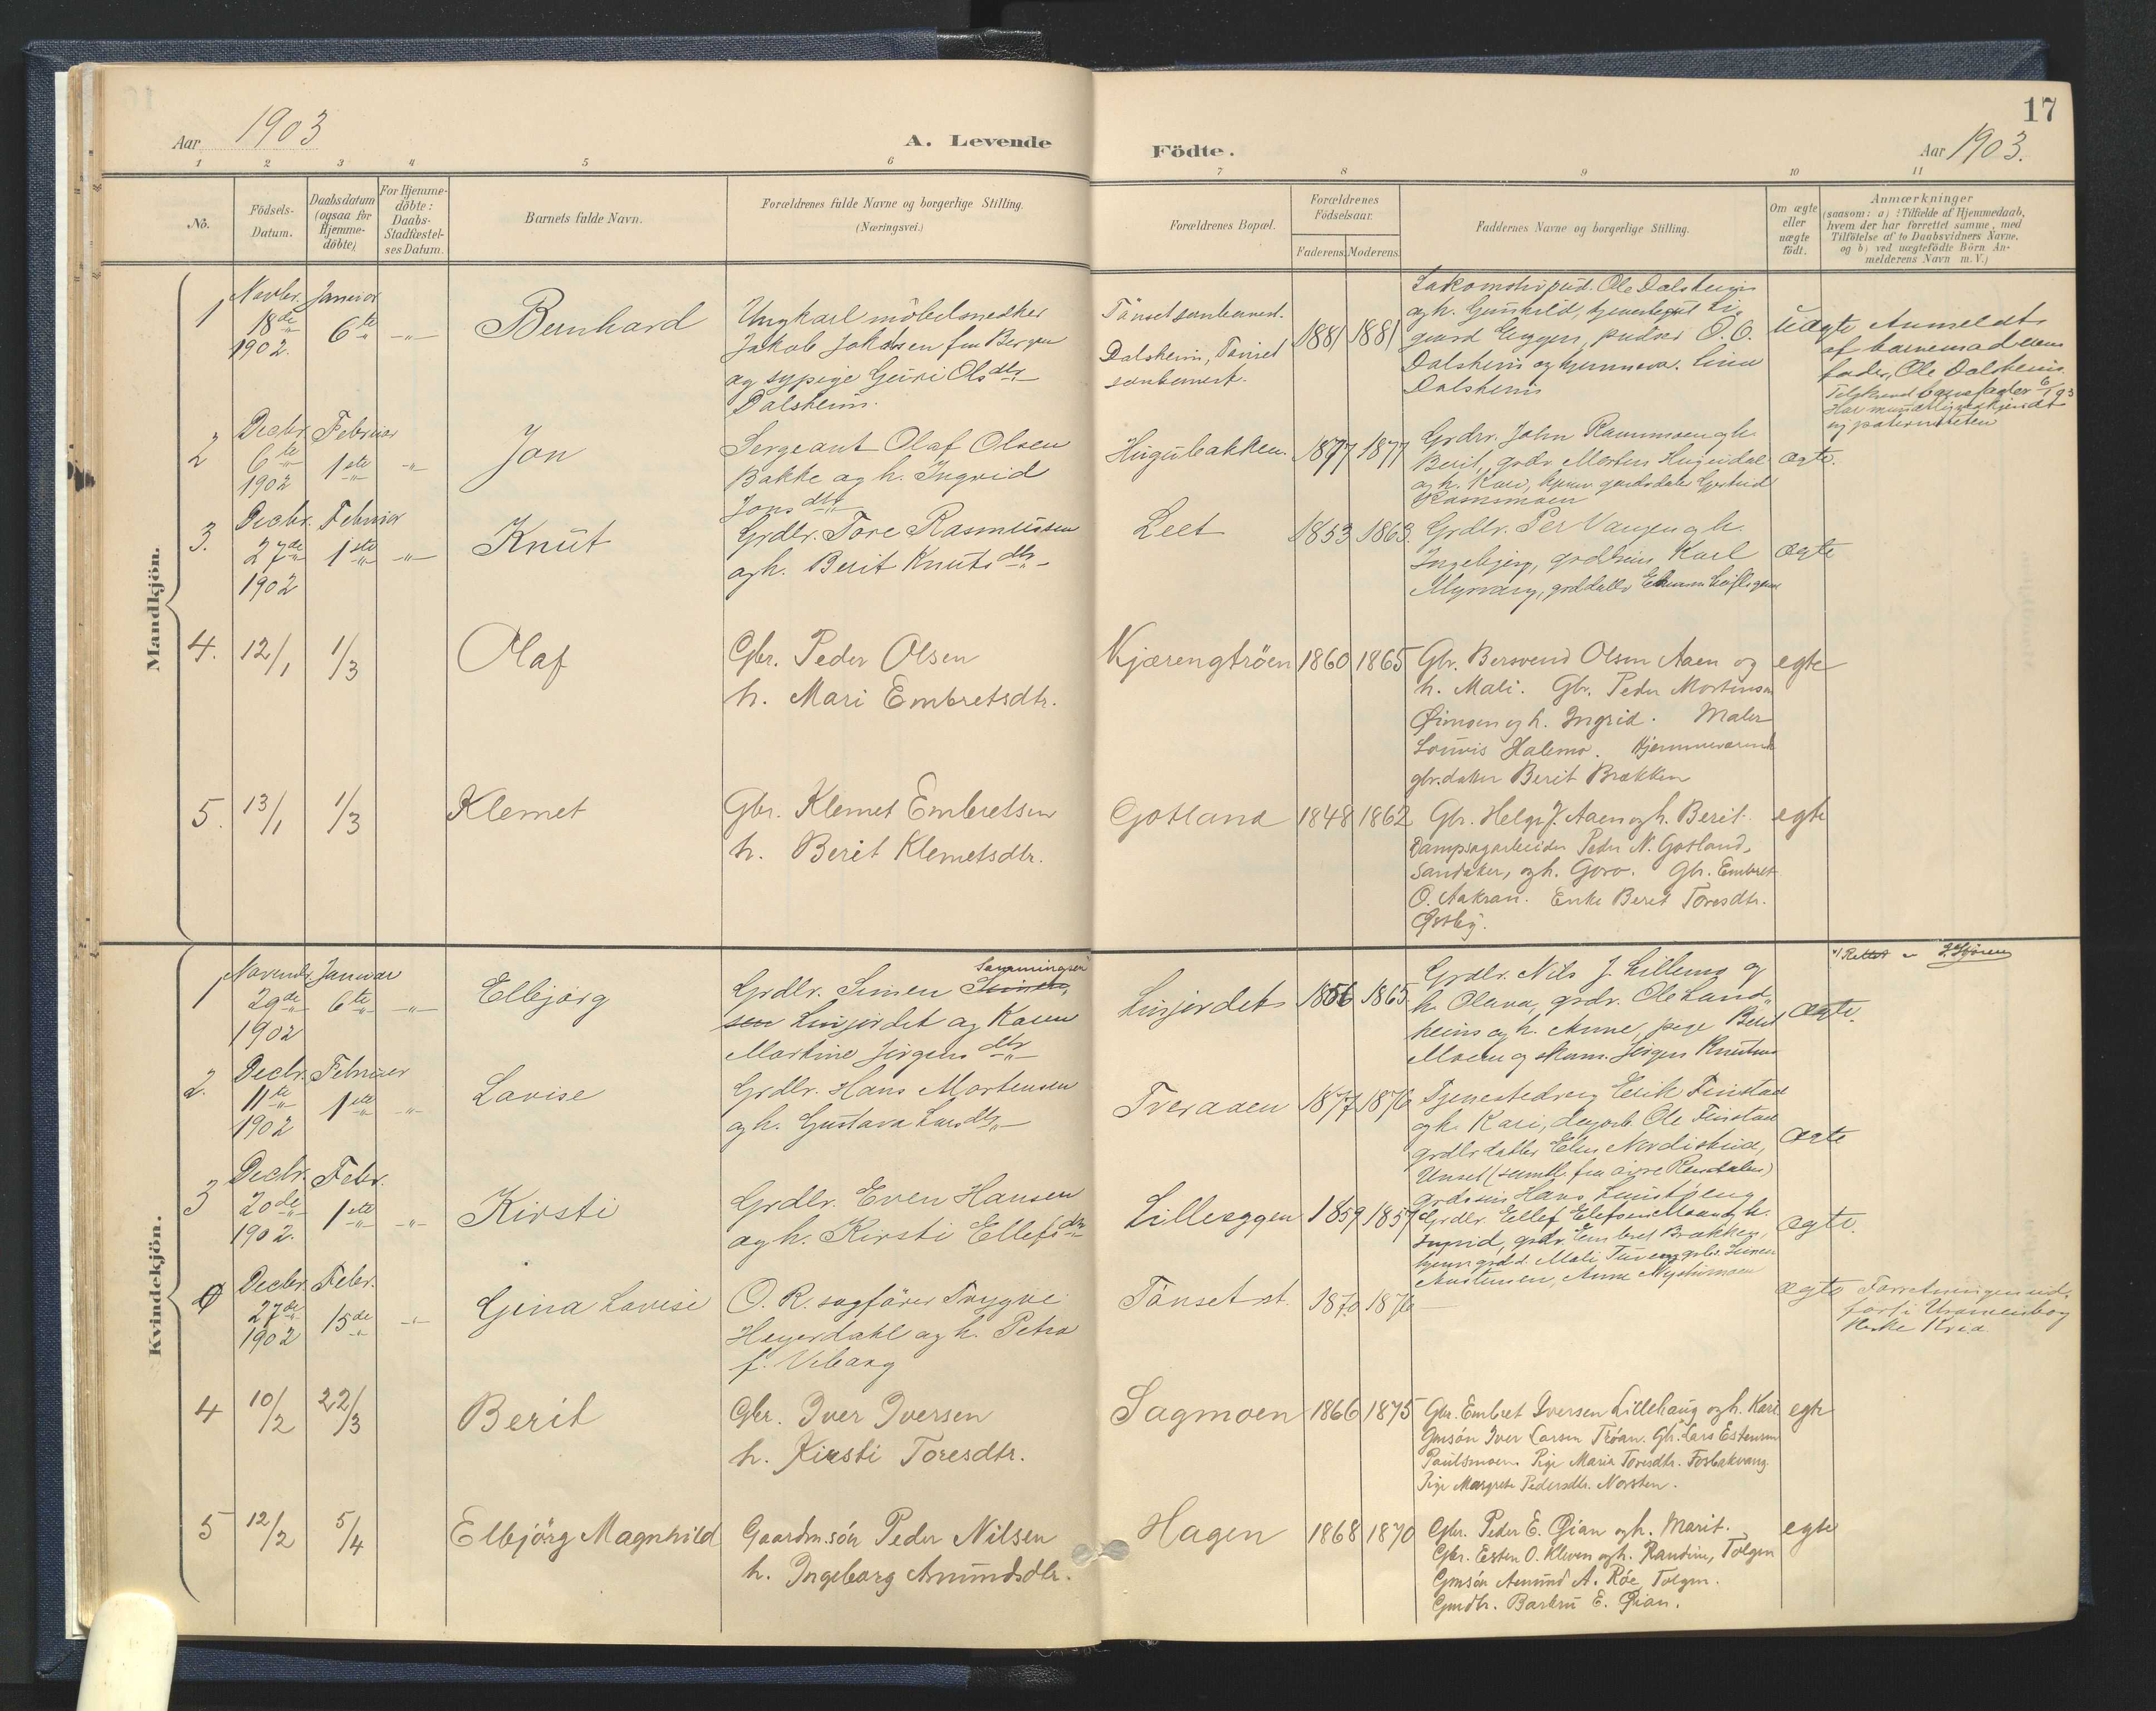 17
Aar 1903
A. Levende
Födte.
Aar 1903.
1 2 3 4 5 6 7 8 9 10 11
No.
Födsels-
Datum.
Daabsdatum
(ogsaa for
Hjemme-
döbte).
For Hjemme-
döbte:
Daabs-
Stadfæstel-
ses Datum.
Barnets fulde Navn.
Forældrenes fulde Navne og borgerlige Stilling.
(Næringsvei.)
Forældrenes Bopæl.
Forældrenes
Födselsaar.
Faderens. Moderens.
Faddernes Navne og borgerlige Stilling.
Om ægte
eller
uægte
födt.
Anmærkninger
(saasom: a) i Tilfælde af Hjemmedaab,
hvem der har forrettet samme, med
Tilföielse af to Daabsvidners Navne,
og b) ved uægtefödte Börn An-
melderens Navn m. V.)
Mandkjön.
1
Novbr.
18de
1902.
Januar
6te
Bernhard
Ungkarl möbelsnedker
Jakob Jakobsen fra Bergen
og sypige Guri Olsdtr.
Dalsheim.
Tönset
Dalsheim, Tönset
1881 1881
Ole Dalsheim
og h. Gunhild,
O. O.
Dalsheim og
Dalsheim
Uægte
Anmeldt
af barnemoderens
fader, Ole Dalsheim.
2
Decbr.
6te
1902
Februar
1ste
Jon
Sergeant Olaf Olsen
Bakke og h. Ingrid
Jonsdtr.
Hugubakken.
1877 1877
Grdbr. John Rammoen og h.
Berit, grdbr. Morten
og h. Kari,
Rammoen
ægte.
3.
Decbr.
27de
1902
Februar
1ste
Knut
Grdbr. Tore Rasmussen
og h. Berit Knutsdtr.
Leet
1853 1863.
Grdbr. Per Vangen og h.
Ingebjörg, Karl
ægte
4.
12/1
1/3
Olaf
Gbr. Peder Olsen
h. Mari Embretsdtr.
Kjærengtröen
1860 1865
Gbr. Bersvend Olsen Aaen og
h. Mali. Gbr. Peder Mortensen
Øimoen og h. Ingrid. Maler
Louvis Halemo. Hjemmeværende
gbr.datter Berit Brækken
egte
5.
13/1
1/3
Klemet
Gbr. Klemet Embretsen
h. Berit Klemetsdtr.
Gotland
1848 1862
Gbr. Helge J. Aaen og h. Berit.
Dampsagarbeider Peder N. Gotland,
Sandaker, og h. Goro. Gbr. Embret
O. Aakran. Enke Beret Toresdtr.
Østby.
egte
Kvindekjön.
1
Novembr.
29de
1902
Januar
6te
Ellbjörg
Grdbr. Simen
Linjordet og Karen
Martine Jörgensdtr.
Linjordet
1856 1865.
Grdbr. Nils J. Lillemo og
h. Olava, grdr. Ole Land-
heim og h. Anne, pige Berit
Moen og Jörgen Knutsen
ægte.
2.
Decbr.
11te
1902
Februar
1ste
Lovise
Grdbr. Hans Mortensen
og h. Gustava Larsdtr.
Tveraaen
1877 1876
Tjenestedreng Erik Finstad
og h. Kari, Ole Finstad
Unset
ægte
3
Decbr.
20de
1902.
Febr.
1ste
Kirsti
Grdbr. Even Hansen
og h. Kirsti Ellefsdtr.
Lilleeggen
1859 1857
Grdbr. Ellef
ægte.
Decbr.
27de
1902
Febr.
15de
Gina Lovise
O. R. sagförer Trygve
Heyerdahl og h. Petra
f. Viborg
Tönset st.
1870 1876
ægte
Forretningen ud-
fört i Uranienborg
Kirke Kr.a.
4
10/2
22/3
Berit
Gbr. Iver Iversen
h. Kirsti Toresdtr.
Sagmoen
1866 1875
Gbr. Embret Iversen Lillehaug og h. Kari
Gmsön Iver Larsen Tröan. Gbr. Lars Estensen
Paulsmoen. Pige Marie Toresdtr. Fosbakvang
Pige Margrete Pedersdtr. Norsten.
egte
5
12/2
5/4
Elbjörg Magnhild
Gaardm.sön Peder Nilsen
h. Ingeborg Amundsdtr.
Hagen
1868 1870
Gbr. Peder E. Øian og h. Marit.
Gbr. Esten O. Kleven og h. Randine, Tolgen
Gmsön Amund A. Röe, Tolgen.
Gmdtr. Barbru E. Øian.
egte